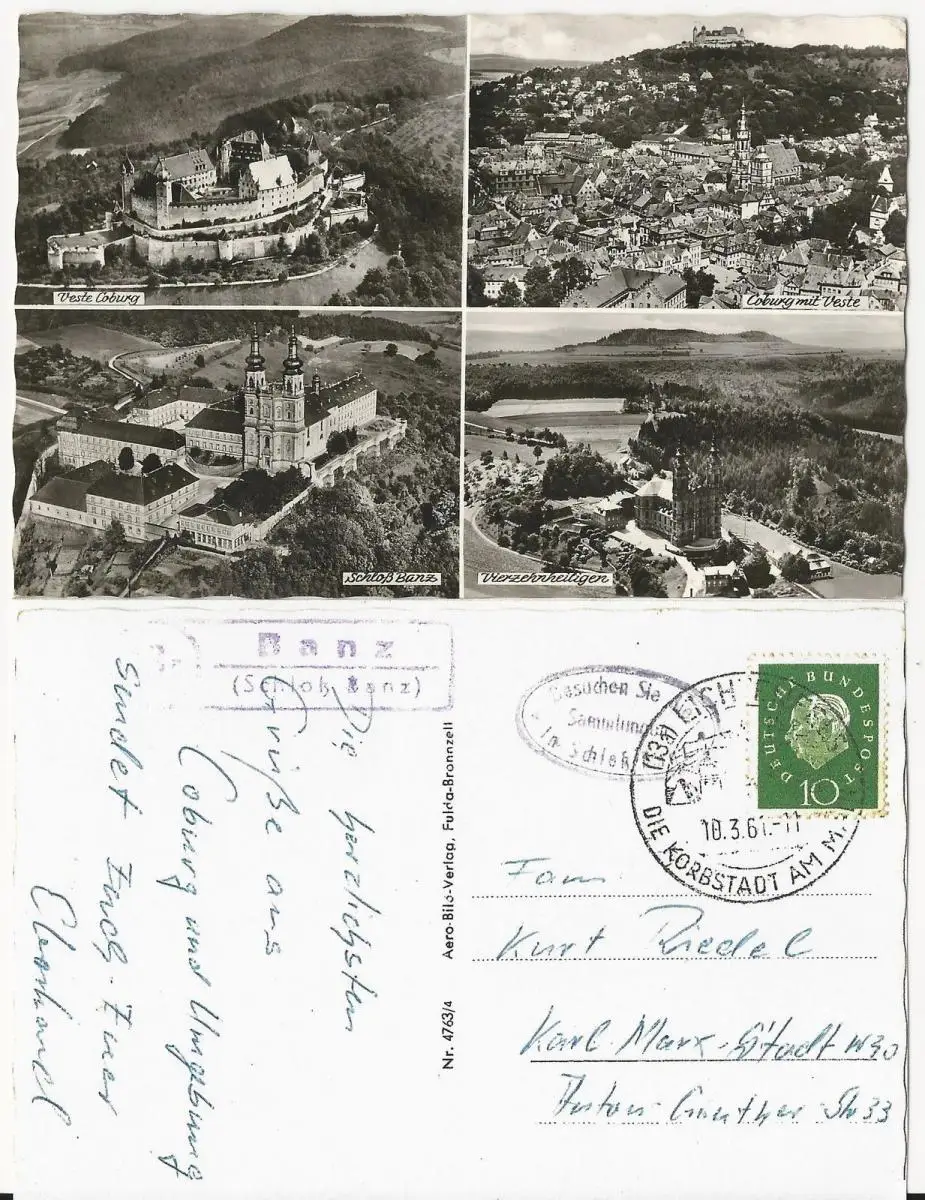 Veste Coburg
Coburg mit Veste
Schloß Banz
Vierzehnheiligen
Banz
(Schloß Banz)
Besuchen Sie
Sammlung
in Schloß
DEUTSCHE BUNDESPOST
10
(13a) LICHT
10.3.61.-11
DIE KORBSTADT AM M
Die herzlichsten
Grüße aus
Coburg und Umgebung
sendet Euch Euer
Aero-Bild-Verlag, Fulda-Bronnzell
Nr. 4763/4
Fam
Kurt Riedel
Karl-Marx-Stadt W30
Anton Günther Str 33